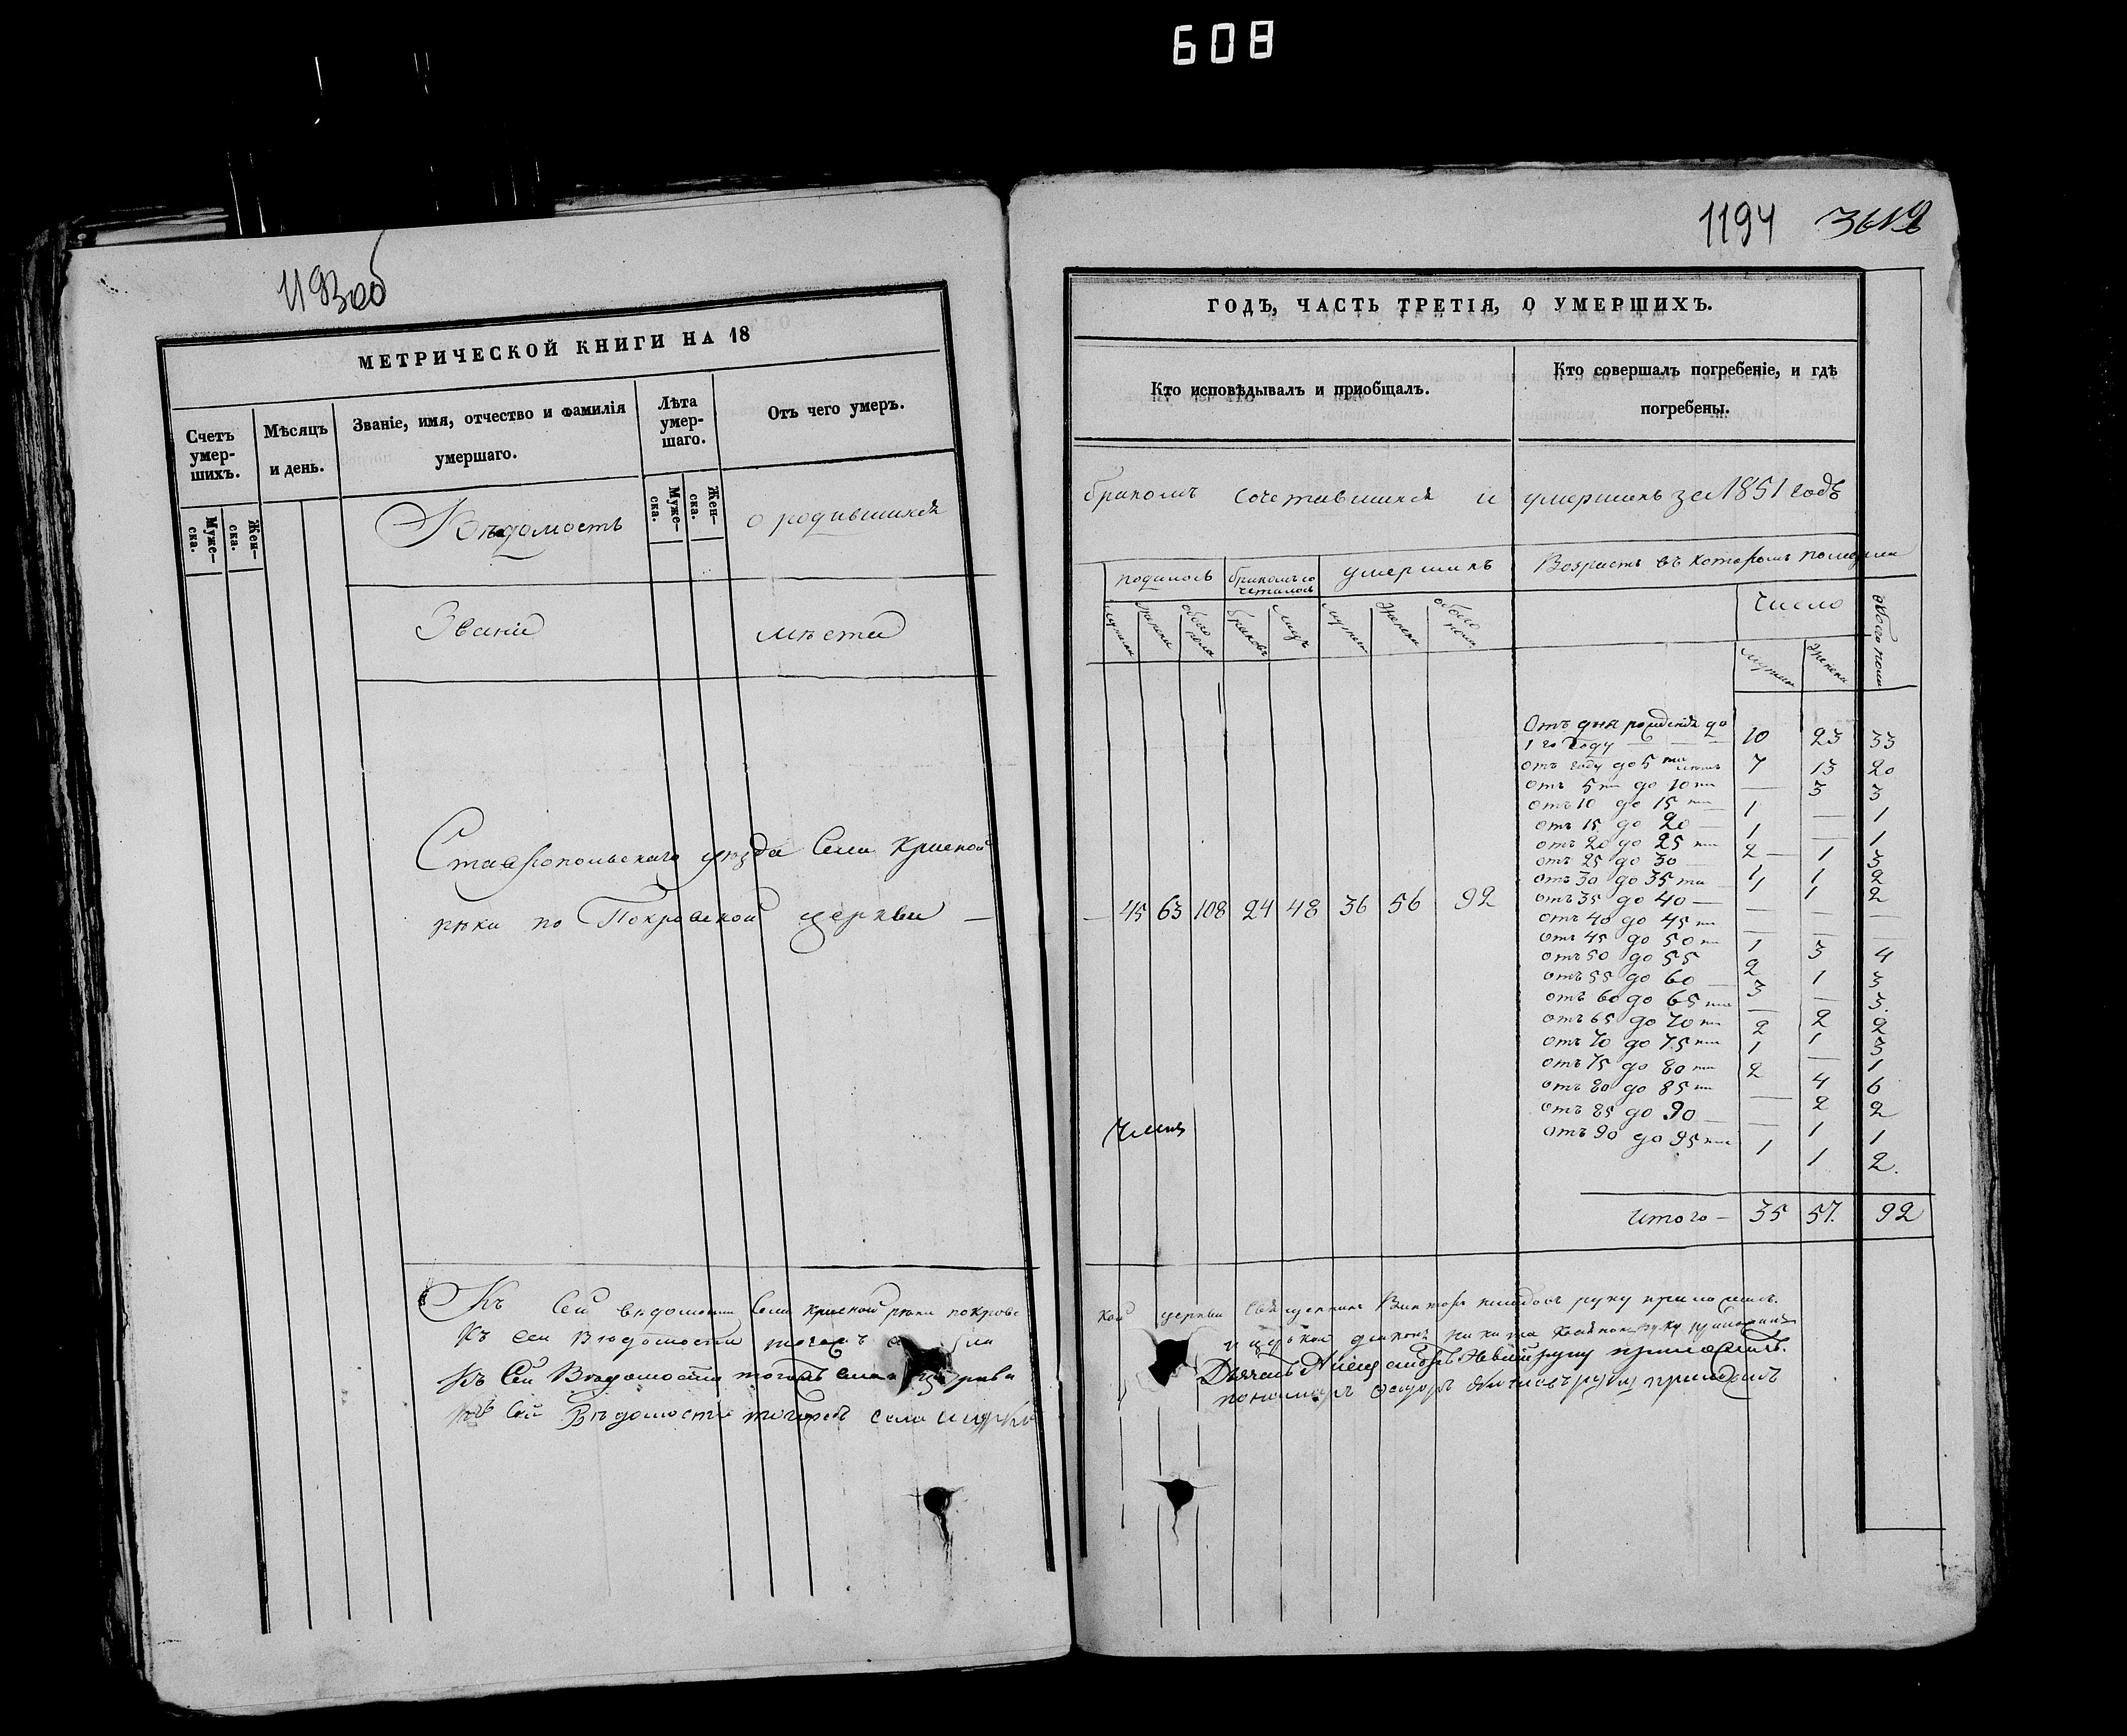 608
1193об
МЕТРИЧЕСКОЙ КНИГИ НА 18
Счетъ умер-шихъ.
Муже-ска.
Жен-ска.
Мѣсяцъ и день.
Званіе, имя, отчество и фамилія умершаго.
Лѣта умер-шаго.
Муже-ска.
Жен-ска.
Отъ чего умеръ.
Вѣдомость о родившихся
Званіе мѣста
Ставропольскаго уѣзда Села Красной
рѣки по Покровской церкви —
Къ Сей вѣдомости Села Красной рѣки покровс
Къ сей Вѣдомости тогожъ
Къ Сей Вѣдомости тогожъ села церкви
Къ Сей Вѣдомости тогожъ села и церкв
1194
ГОДЪ, ЧАСТЬ ТРЕТІЯ, О УМЕРШИХЪ.
Кто исповѣдывалъ и пріобщалъ.
Кто совершалъ погребеніе, и гдѣ погребены.
бракомъ сочетавшихся и умершихъ за 1851 годъ
родилось
бракомъ сочеталось
умершихъ
Возрастъ въ которомъ померли
мужска
женска
обоего пола
браковъ
лицъ
мужска
женска
обоего пола
число
мужска
женска
обоего пола
— 45 63 108 24 48 36 56 92
Отъ дня рожденія до
1 го году — 10 23 33
отъ году до 5 ти лѣтъ 7 13 20
отъ 5 ти до 10 ти — 3 3
отъ 10 до 15 ти 1 — 1
отъ 15 до 20 — 1 — 1
отъ 20 до 25 ти 2 1 3
отъ 25 до 30 — 1 1 2
отъ 30 до 35 ти 1 1 2
отъ 35 до 40 — — — —
отъ 40 до 45 ти — — —
отъ 45 до 50 ти 1 3 4
отъ 50 до 55 2 1 3
отъ 55 до 60 — 3 — 3.
отъ 60 до 65 ти — 2 2
отъ 65 до 70 ти 2 1 3
отъ 70 до 75 ти 1 — 1
отъ 75 до 80 ти 2 4 6
отъ 80 до 85 ти — 2 2
отъ 85 до 90 — — 1 1
отъ 90 до 95 ти 1 1 2.
итого — 35 57. 92
кой церкви Священникъ Викторъ руку приложилъ.
и церкви діаконъ Никита руку приложилъ
Дьячекъ руку приложилъ.
пономарь руку приложилъ